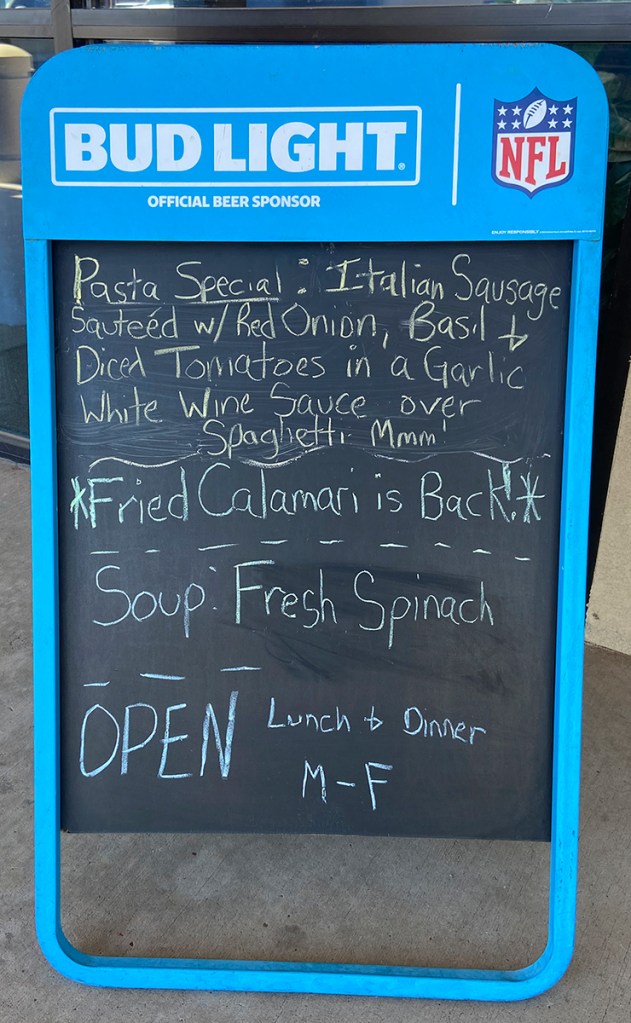 BUD LIGHT®
OFFICIAL BEER SPONSOR
NFL
ENJOY RESPONSIBLY
Pasta Special: Italian Sausage
Sauteéd w/ Red Onion, Basil &
Diced Tomatoes in a Garlic
White Wine Sauce over
Spaghetti Mmm!
*Fried Calamari is Back!*
Soup: Fresh Spinach
OPEN Lunch & Dinner
M-F